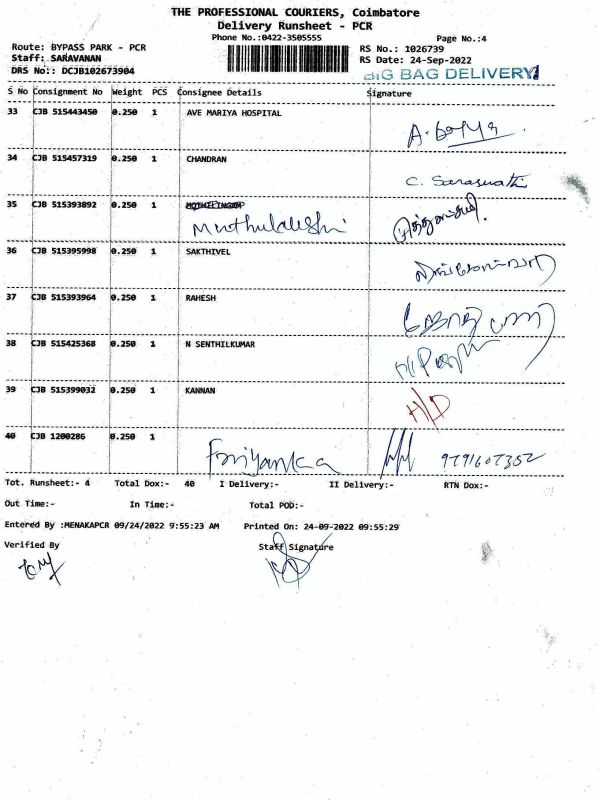 THE PROFESSIONAL COURIERS, Coimbatore
Delivery Runsheet - PCR
Phone No.:0422-3505555
Page No.:4
Route: BYPASS PARK - PCR
RS No.: 1026739
Staff: SARAVANAN
RS Date: 24-Sep-2022
DRS No:: DCJB102673904
BIG BAG DELIVERY
S No Consignment No Weight PCS Consignee Details Signature
33 CJB 515443450 0.250 1 AVE MARIYA HOSPITAL
34 CJB 515457319 0.250 1 CHANDRAN
C. Saraswathi
35 CJB 515393892 0.250 1
Muthulakshi
36 CJB 515395998 0.250 1 SAKTHIVEL
37 CJB 515393964 0.250 1 RAHESH
38 CJB 515425368 0.250 1 N SENTHILKUMAR
39 CJB 515399032 0.250 1 KANNAN
H/D
40 CJB 1200286 0.250 1
Priyanka 9791607352
Tot. Runsheet:- 4 Total Dox:- 40 I Delivery:- II Delivery:- RTN Dox:-
Out Time:- In Time:- Total POD:-
Entered By :MENAKAPCR 09/24/2022 9:55:23 AM Printed On: 24-09-2022 09:55:29
Verified By Staff Signature